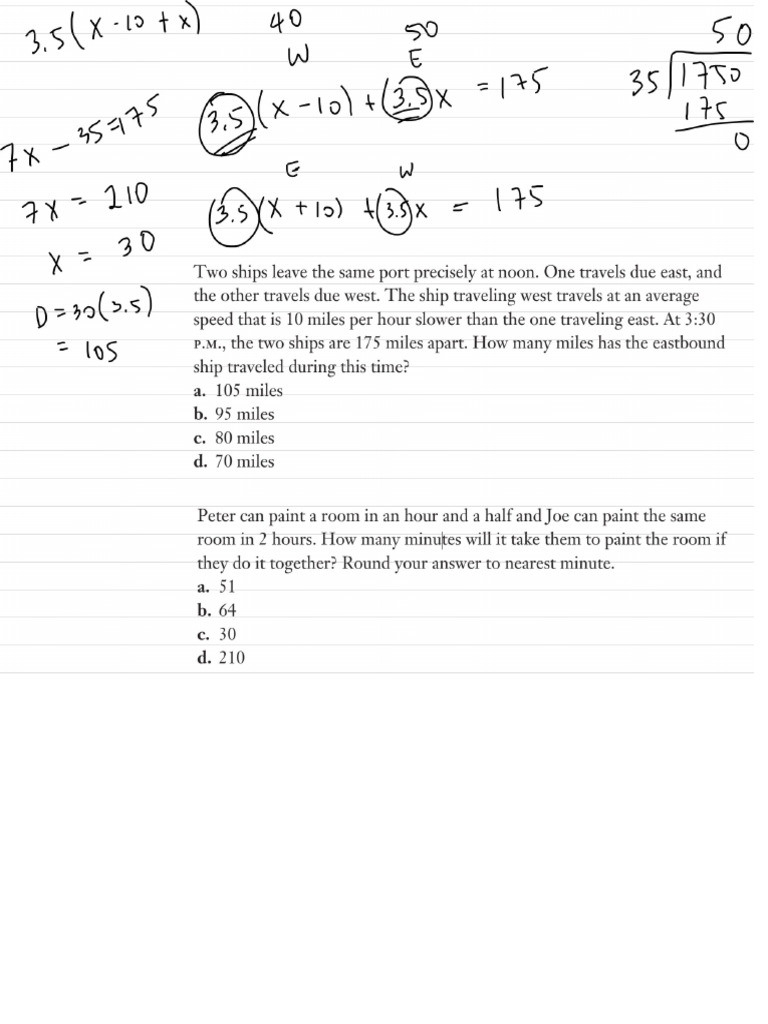 3.5(x-10+x)
40 50
W E
(3.5)(x-10)+(3.5)x = 175
50
35 1750
175
0
7x - 35=175
7x = 210
x = 30
D=30(3.5)
= 105
E W
(3.5)(x+10) +(3.5)x = 175
Two ships leave the same port precisely at noon. One travels due east, and
the other travels due west. The ship traveling west travels at an average
speed that is 10 miles per hour slower than the one traveling east. At 3:30
P.M., the two ships are 175 miles apart. How many miles has the eastbound
ship traveled during this time?
a. 105 miles
b. 95 miles
c. 80 miles
d. 70 miles
Peter can paint a room in an hour and a half and Joe can paint the same
room in 2 hours. How many minutes will it take them to paint the room if
they do it together? Round your answer to nearest minute.
a. 51
b. 64
c. 30
d. 210